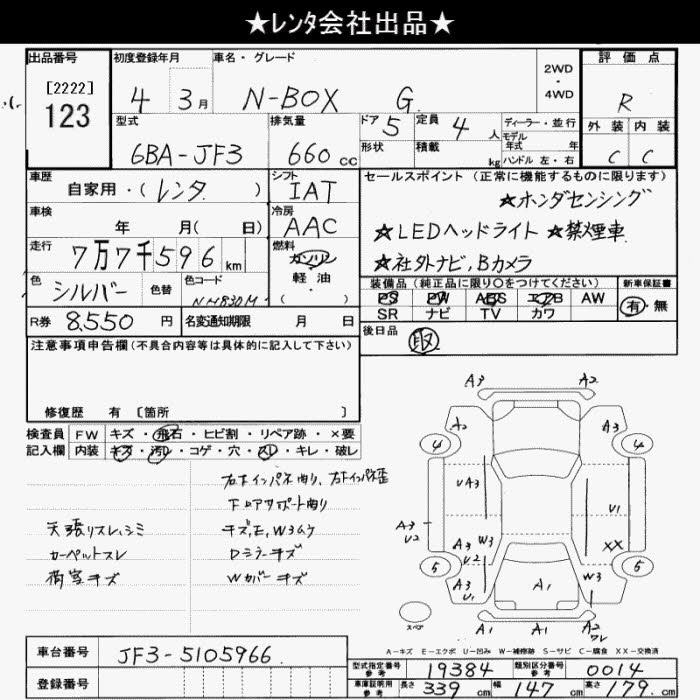 ★レンタ会社出品★
出品番号 初度登録年月 車名・グレード 2WD・4WD 評価点
[2222] 123 4 3月 N-BOX G R
型式 排気量 ドア 5 定員 4人 ディーラー・並行 外装 内装
モデル年式 年
6BA-JF3 660cc 形状 積載 kg ハンドル 左・右 C C
車歴 自家用・(レンタ) シフト IAT セールスポイント (正常に機能するものに限ります)
★ホンダセンシング
車検 年 月(日) 冷房 AAC ★LEDヘッドライト ★禁煙車
走行 7万7千596km 燃料 ガソリン 軽油・( ) ★社外ナビ,Bカメラ
色 シルバー 色替 色コード NH830M
装備品(純正品に限り○をつけてください) 新車保証書
PS PW ABS エアB AW 有・無
SR ナビ TV カワ
R券 8,550円 名変通知期限 月 日 後日品 取
注意事項申告欄(不具合内容等は具体的に記入して下さい)
修復歴 有 [箇所 ]
検査員 FW キズ・飛石・ヒビ割・リペア跡・×要
記入欄 内装 キズ・汚レ・コゲ・穴・スレ・キレ・破レ
右Fインパネ曲り、右Fインパネ歪
下ロアサポート曲り
天張リスレ、シミ キズ,E,W3ムケ
カーペットスレ Dミラーキズ
荷室キズ Wカバーキズ
A3 A2
A2
4 4
UA3 U1
A3 U2
A3 U2 W3 XX
5 5
A3 U1 A1 W3
スペア A1 A1 A2 ワレ
A-キズ E-エクボ U-凹み W-補修跡 S-サビ C-腐食 XX-交換済
車台番号 JF3-5105966
登録番号
型式指定番号 参考 19384 類別区分番号 参考 0014
車庫証明用 参考 長さ 339cm 幅 147cm 高さ 179cm